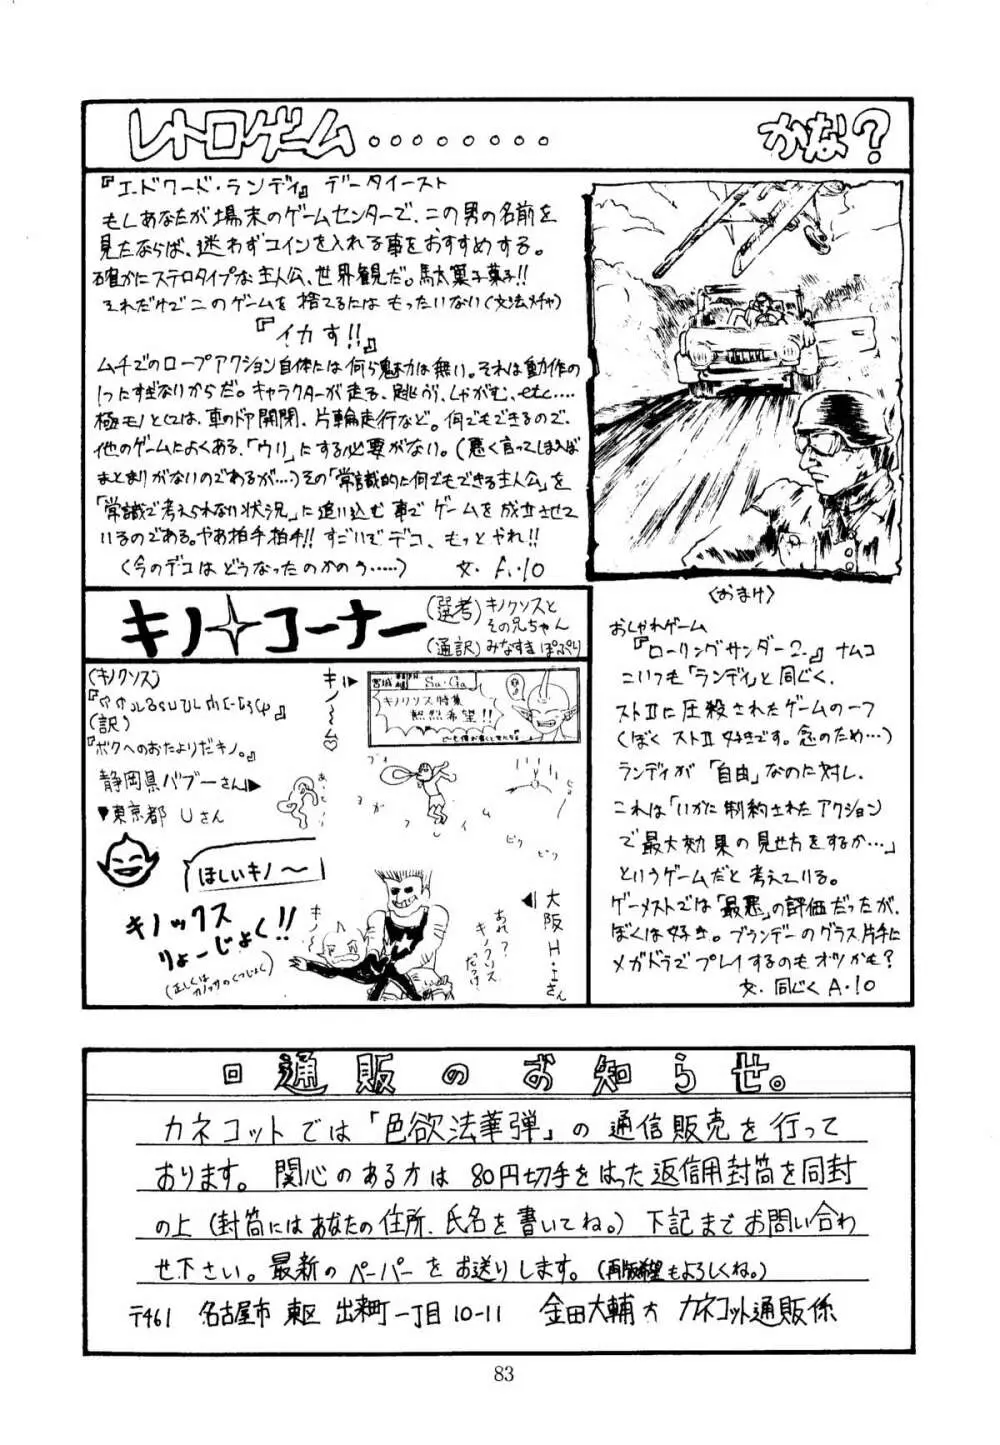 レトロゲーム・・・・・・・・ かな?
『エドワード・ランディ』データイースト
もしあなたが場末のゲームセンターで、この男の名前を
見たならば、迷わずコインを入れる事をおすすめする。
確かにステロタイプな主人公、世界観だ。馬太菓子菓子!!
それだけでこのゲームを捨てるにはもったいない(文法メチャ)
『イカす!!』
ムチでのロープアクション自体には何ら魅力は無い。それは動作の
1つにすぎないからだ。キャラクターが走る、跳ぶ、しゃがむ、etc....
極モノとしては、車のドア開閉、片輪走行など。何でもできるので、
他のゲームによくある、「ウリ」にする必要がない。(悪く言ってしまえば
まとまりがないのであるが…)その「常識的に何でもできる主人公」を
「常識で考えられない状況」に追い込む事でゲームを成立させて
いるのである。やあ拍手拍手!!すごいぞデコ、もっとやれ!!
(今のデコはどうなったのかのう・・・・・) 文・A・10
キノ コーナー
(選考) キノクソスと
その兄ちゃん
(通訳) みなすきぽぷり
(キノクソス)
(訳)
『ボクへのおたよりだキノ。』
静岡県バブーさん
東京都 Uさん
キノ〜ム♡
宮城 Su・Ga
キノクソス特集
熱烈希望!!
ブィ
ム
ピク ピク
ほしいキノ〜
キノックス
りょーじょく!!
キノ〜
あれ?
キノクソス
だっけ
大阪 H・Iさん
〈おまけ〉
おしゃれゲーム
『ローリングサンダー2』ナムコ
こいつも「ランディ」と同じく、
ストⅡに圧殺されたゲームの一つ
(ぼくストⅡ好きです。念のため…)
ランディが「自由」なのに対し、
これは「いかに制約されたアクション
で最大効果の見せ方をするか…」
というゲームだと考えている。
ゲーメストでは「最悪」の評価だったが、
ぼくは好き。ブランデーのグラス片手に
メガドラでプレイするのもオツかも?
文・同じくA・10
回通販のお知らせ。
カネコットでは「色欲法華弾」の通信販売を行って
おります。関心のある方は80円切手をはった返信用封筒を同封
の上(封筒にはあなたの住所、氏名を書いてね。)下記までお問い合わ
せ下さい。最新のペーパーをお送りします。(再版希望もよろしくね。)
〒461 名古屋市東区出来町一丁目10-11 金田大輔方 カネコット通販係
83